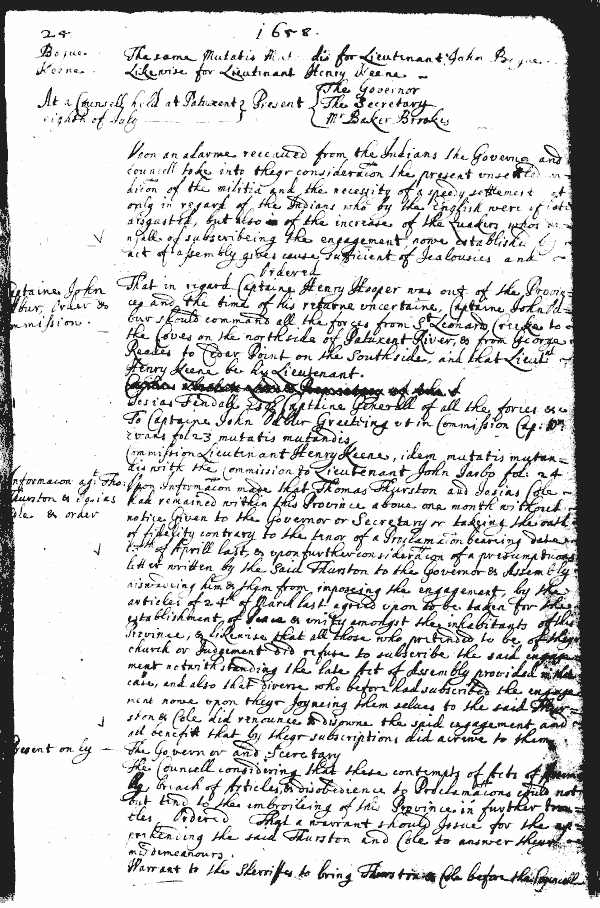 24 1658.
Bogue. The same Mutatis Mut dis for Lieutenant John Bogue
Keene. Likewise for Lieutenant Henry Keene
At a Counsell held at Patuxent } Present { The Governor
eighth of July The Secretary
Mr Baker Brookes
Upon an alarme received from the Indians the Governor and
councell take into theyr consideracon the present unsetled
dicon of the militia and the necessity of a speedy settlement
only in regard of the Indians who by the English were
disgusted, but also of the increase of the Quakers whose
usall of subscribeing the engagement nowe establish
act of Assembly gives cause sufficient of Jealousies and
Ordered
That in regard Captaine Henry Hooper was out of the Provin
ces and the time of his returne uncertaine, Captaine John
Captaine John
bur, order & bur should command all the forces from St Leonards creeke to
mission. the Coves on the northside of Patuxent River, & from George
Reades to Cedar Point on the Southside, and that Lieut
Henry Keene be his Lieutenant.
Josias Fendall Esqr Captaine Generall of all the forces &c
To Captaine John Greeting ut in Commission Cap: Wm
Evans fol 23 mutatis mutandis
Commission Lieutenant Henry Keene, idem mutatis mutan-
dis with the Commission to Lieutenant John fol: 24
Informacon agt Tho: Upon Informacon made that Thomas Thurston and Josias Cole
Thurston & Josias had remained within this Province above one month without
Cole & order notice given to the Governor or Secretary or taking the oath
of fidelity contrary to the tenor of a Proclamacon bearing date
of Aprill last, & upon further consideracon of a presumptuous
letter written by the said Thurston to the Governor & Assembly
diswadeing him & them from imposeing the engagement, by the
articles of 24th of March last agreed upon to be taken for the
establishment of Peace & unity amongst the inhabitants of this
Province, & likewise that all those who pretended to be of theyr
church or Judgement did refuse to subscribe the said engage
ment notwithstanding the late Act of Assembly provided in that
case, and also that diverse who before had subscribed the engage
ment nowe upon theyr Joyneing them selves to the said Thur-
ston & Cole did renounce & disowne the said engagement, and
all benefitt that by theyr subscriptions did accrewe to them
Present only The Governor and Secretary
The Councell considering that these contempts of Acts of
bly breach of Articles, & disobedience to Proclamacons could not
but tend to the embroileing of this Province in further trou-
bles Ordered That a warrant should Issue for the ap-
prehending the said Thurston and Cole to answer theyr
misdemeanours
Warrant to the Sherriffes to bring Thurston & Cole before the Councell